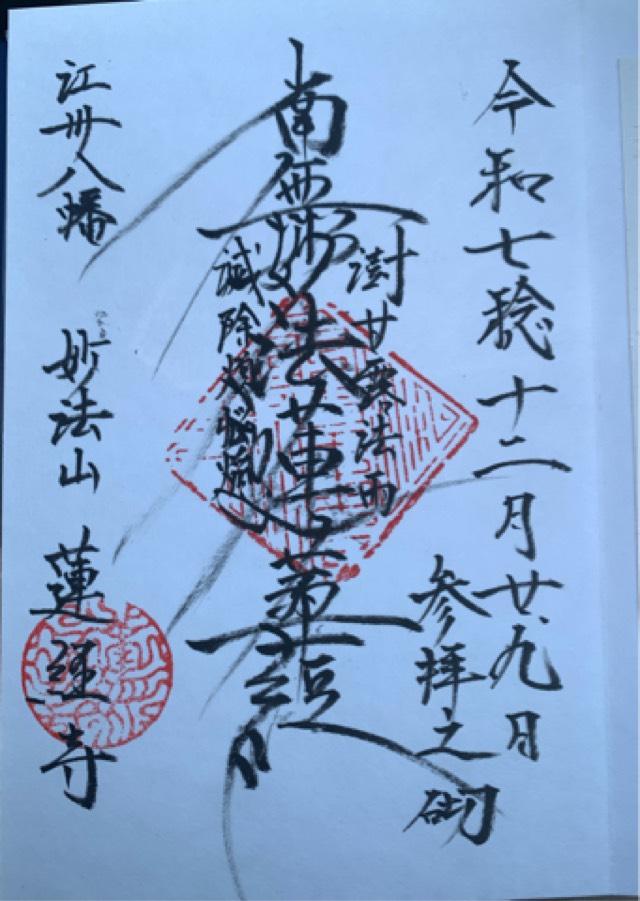 令和七稔十二月廿九日
参拝之砌
澍甘露法雨
南無妙法蓮華経
滅除煩悩焔
江州八幡 妙法山 蓮経寺